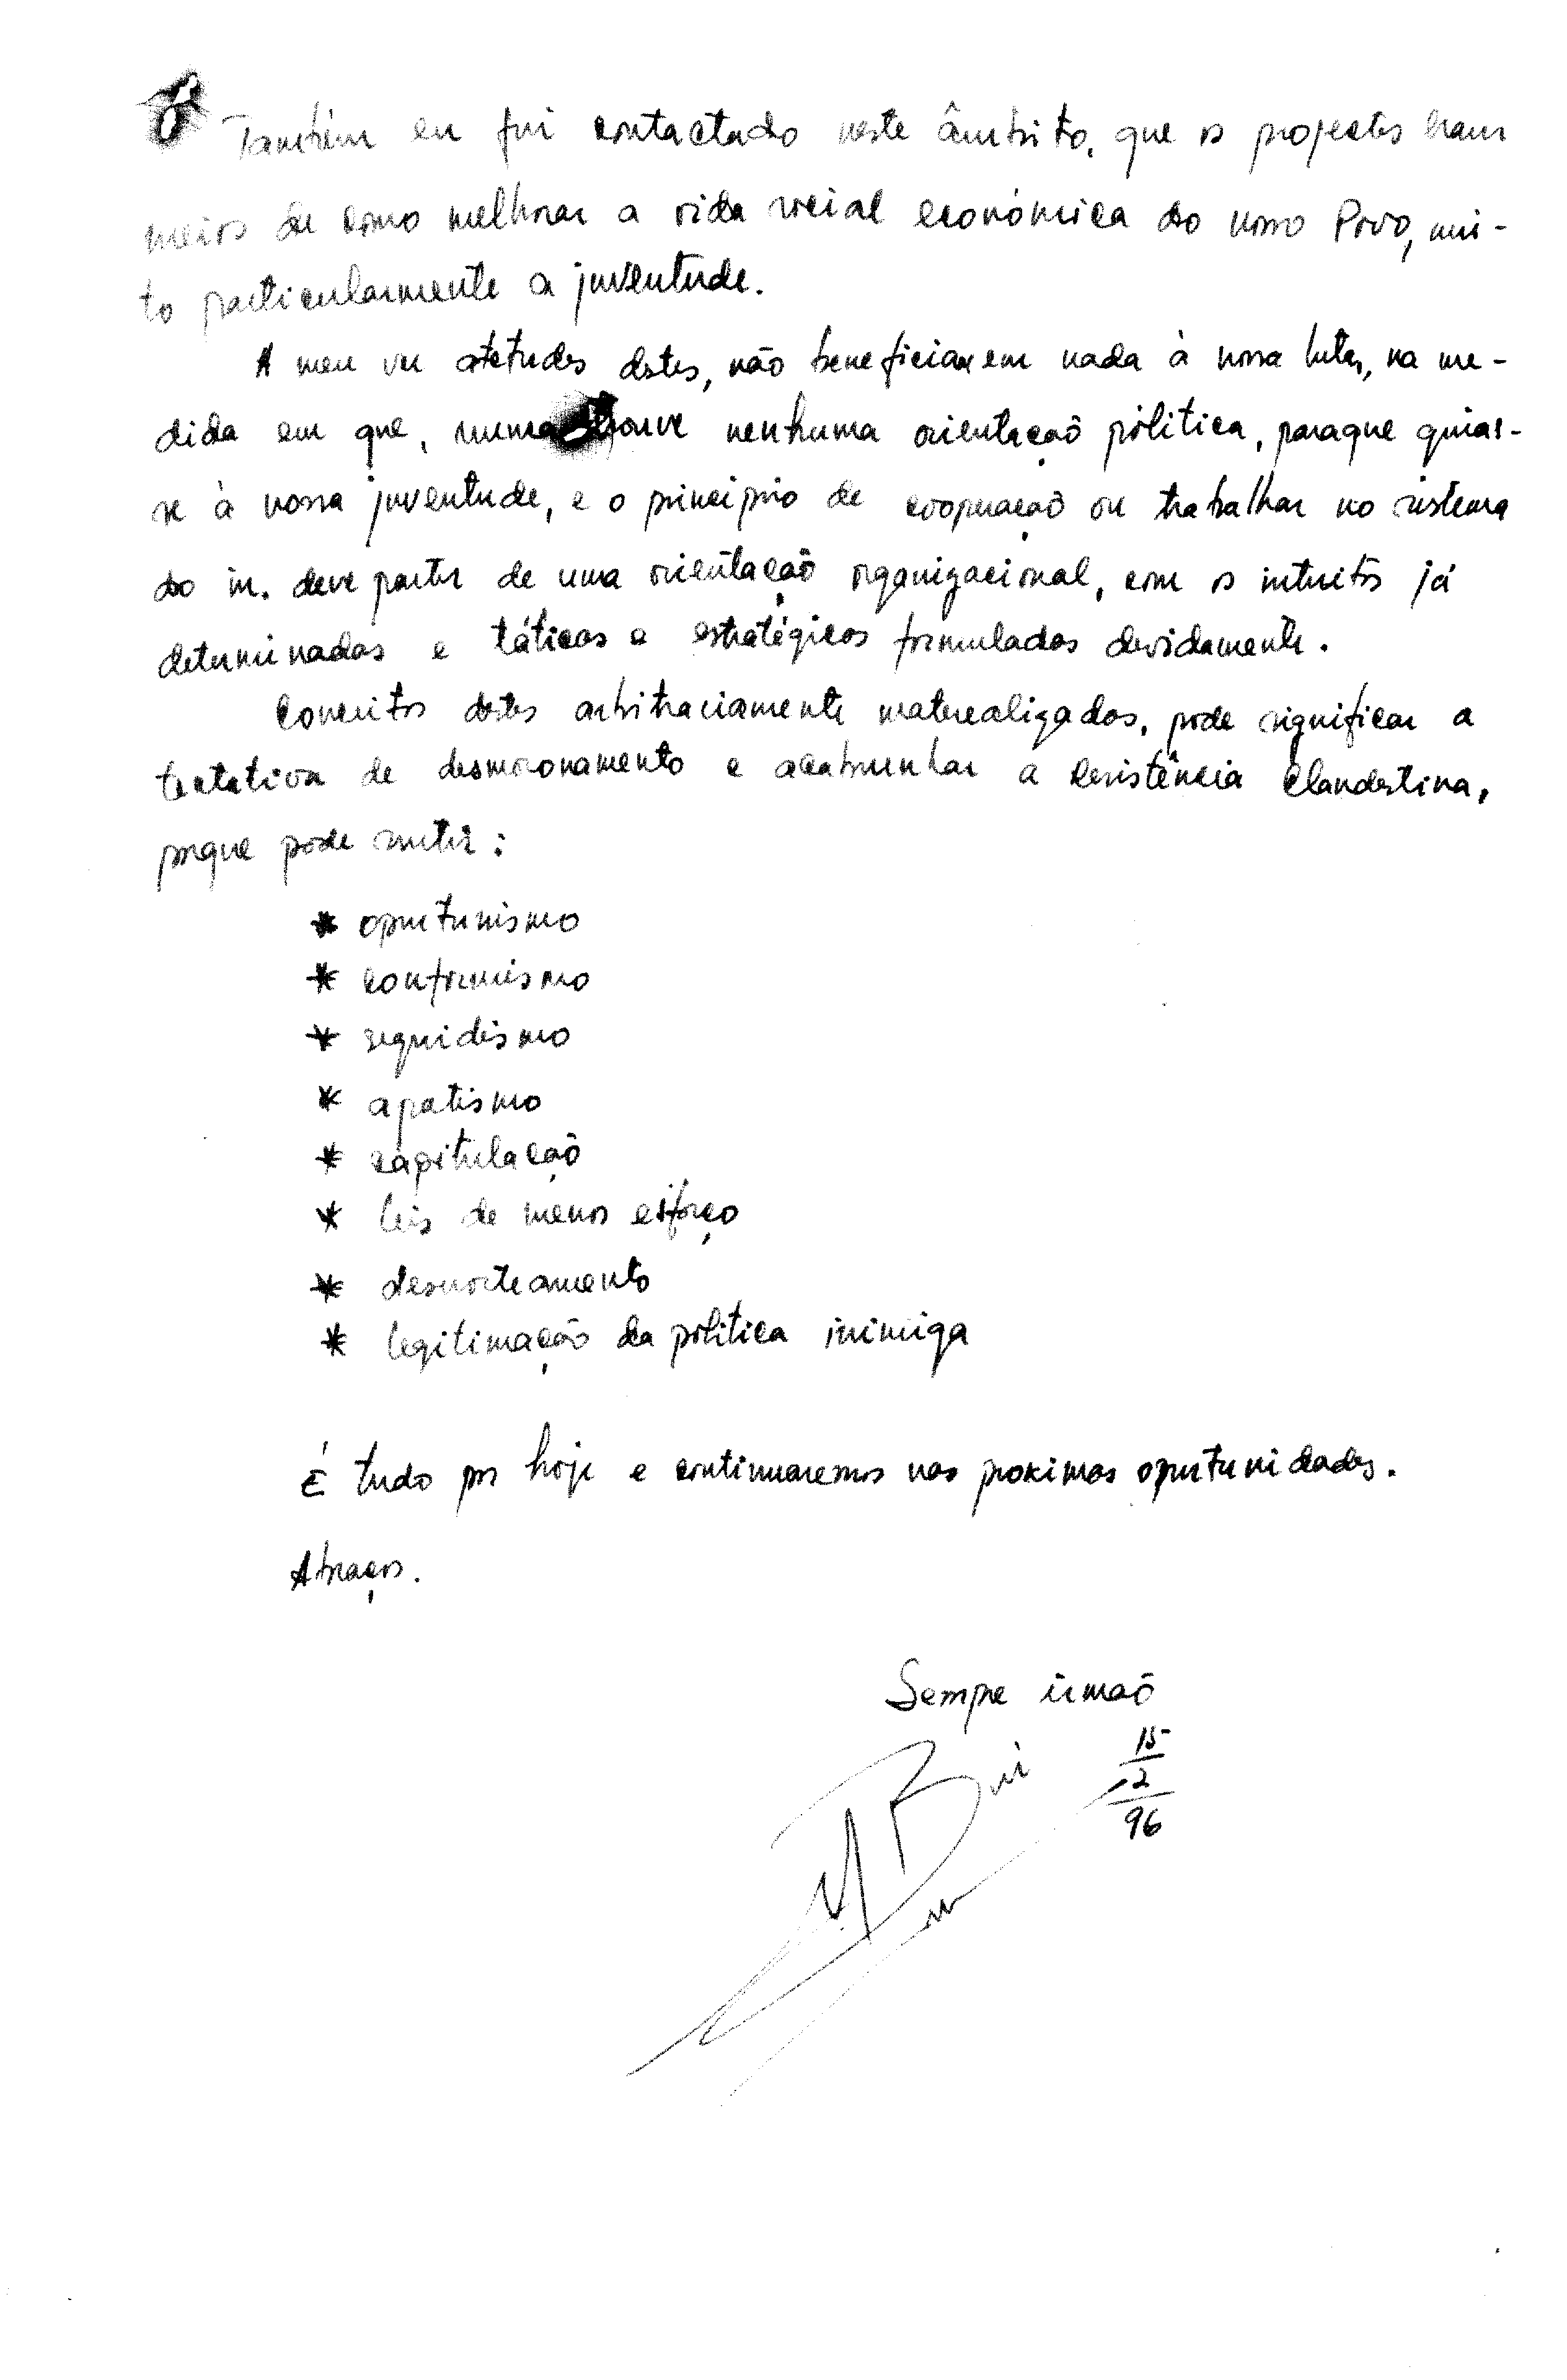 Também eu fui contactado neste âmbito, que os projectos eram
meios de como melhorar a vida social económica do nosso Povo, mui-
to particularmente a juventude.
A meu ver atetudes destes, não beneficiaxem nada à nossa luta, na me-
dida em que, nunca houve nenhuma orientaçaõ política, paraque guias-
se à nossa juventude, e o princípio de cooperaçaõ ou trabalhar no sistema
do in. deve partir de uma orientaçaõ organizacional, com os intuitos já
determinados e táticos e estratégicos formulados devidamente.
Conceitos destes arbitrariamente materealizados, pode significar a
tentativa de desmoronamento e acabrunhar a Resistência Clandestina,
porque pode surtir:
* oportunismo
* conformismo
* seguidismo
* apatismo
* capitulaçaõ
* leis de menos esforço
* desnorteamento
* legitimação da política inimiga
É tudo por hoje e continuaremos nas proximas oportunidades.
Abraços.
Sempre irmaõ
15
12
96